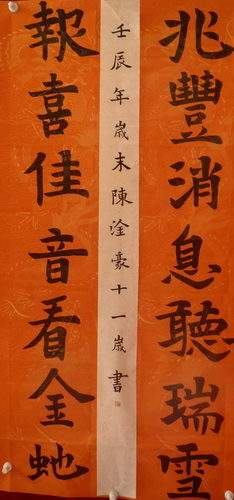 兆豐消息聽瑞雪
壬辰年歲末陳淦豪十一歲書
報喜佳音看金虵